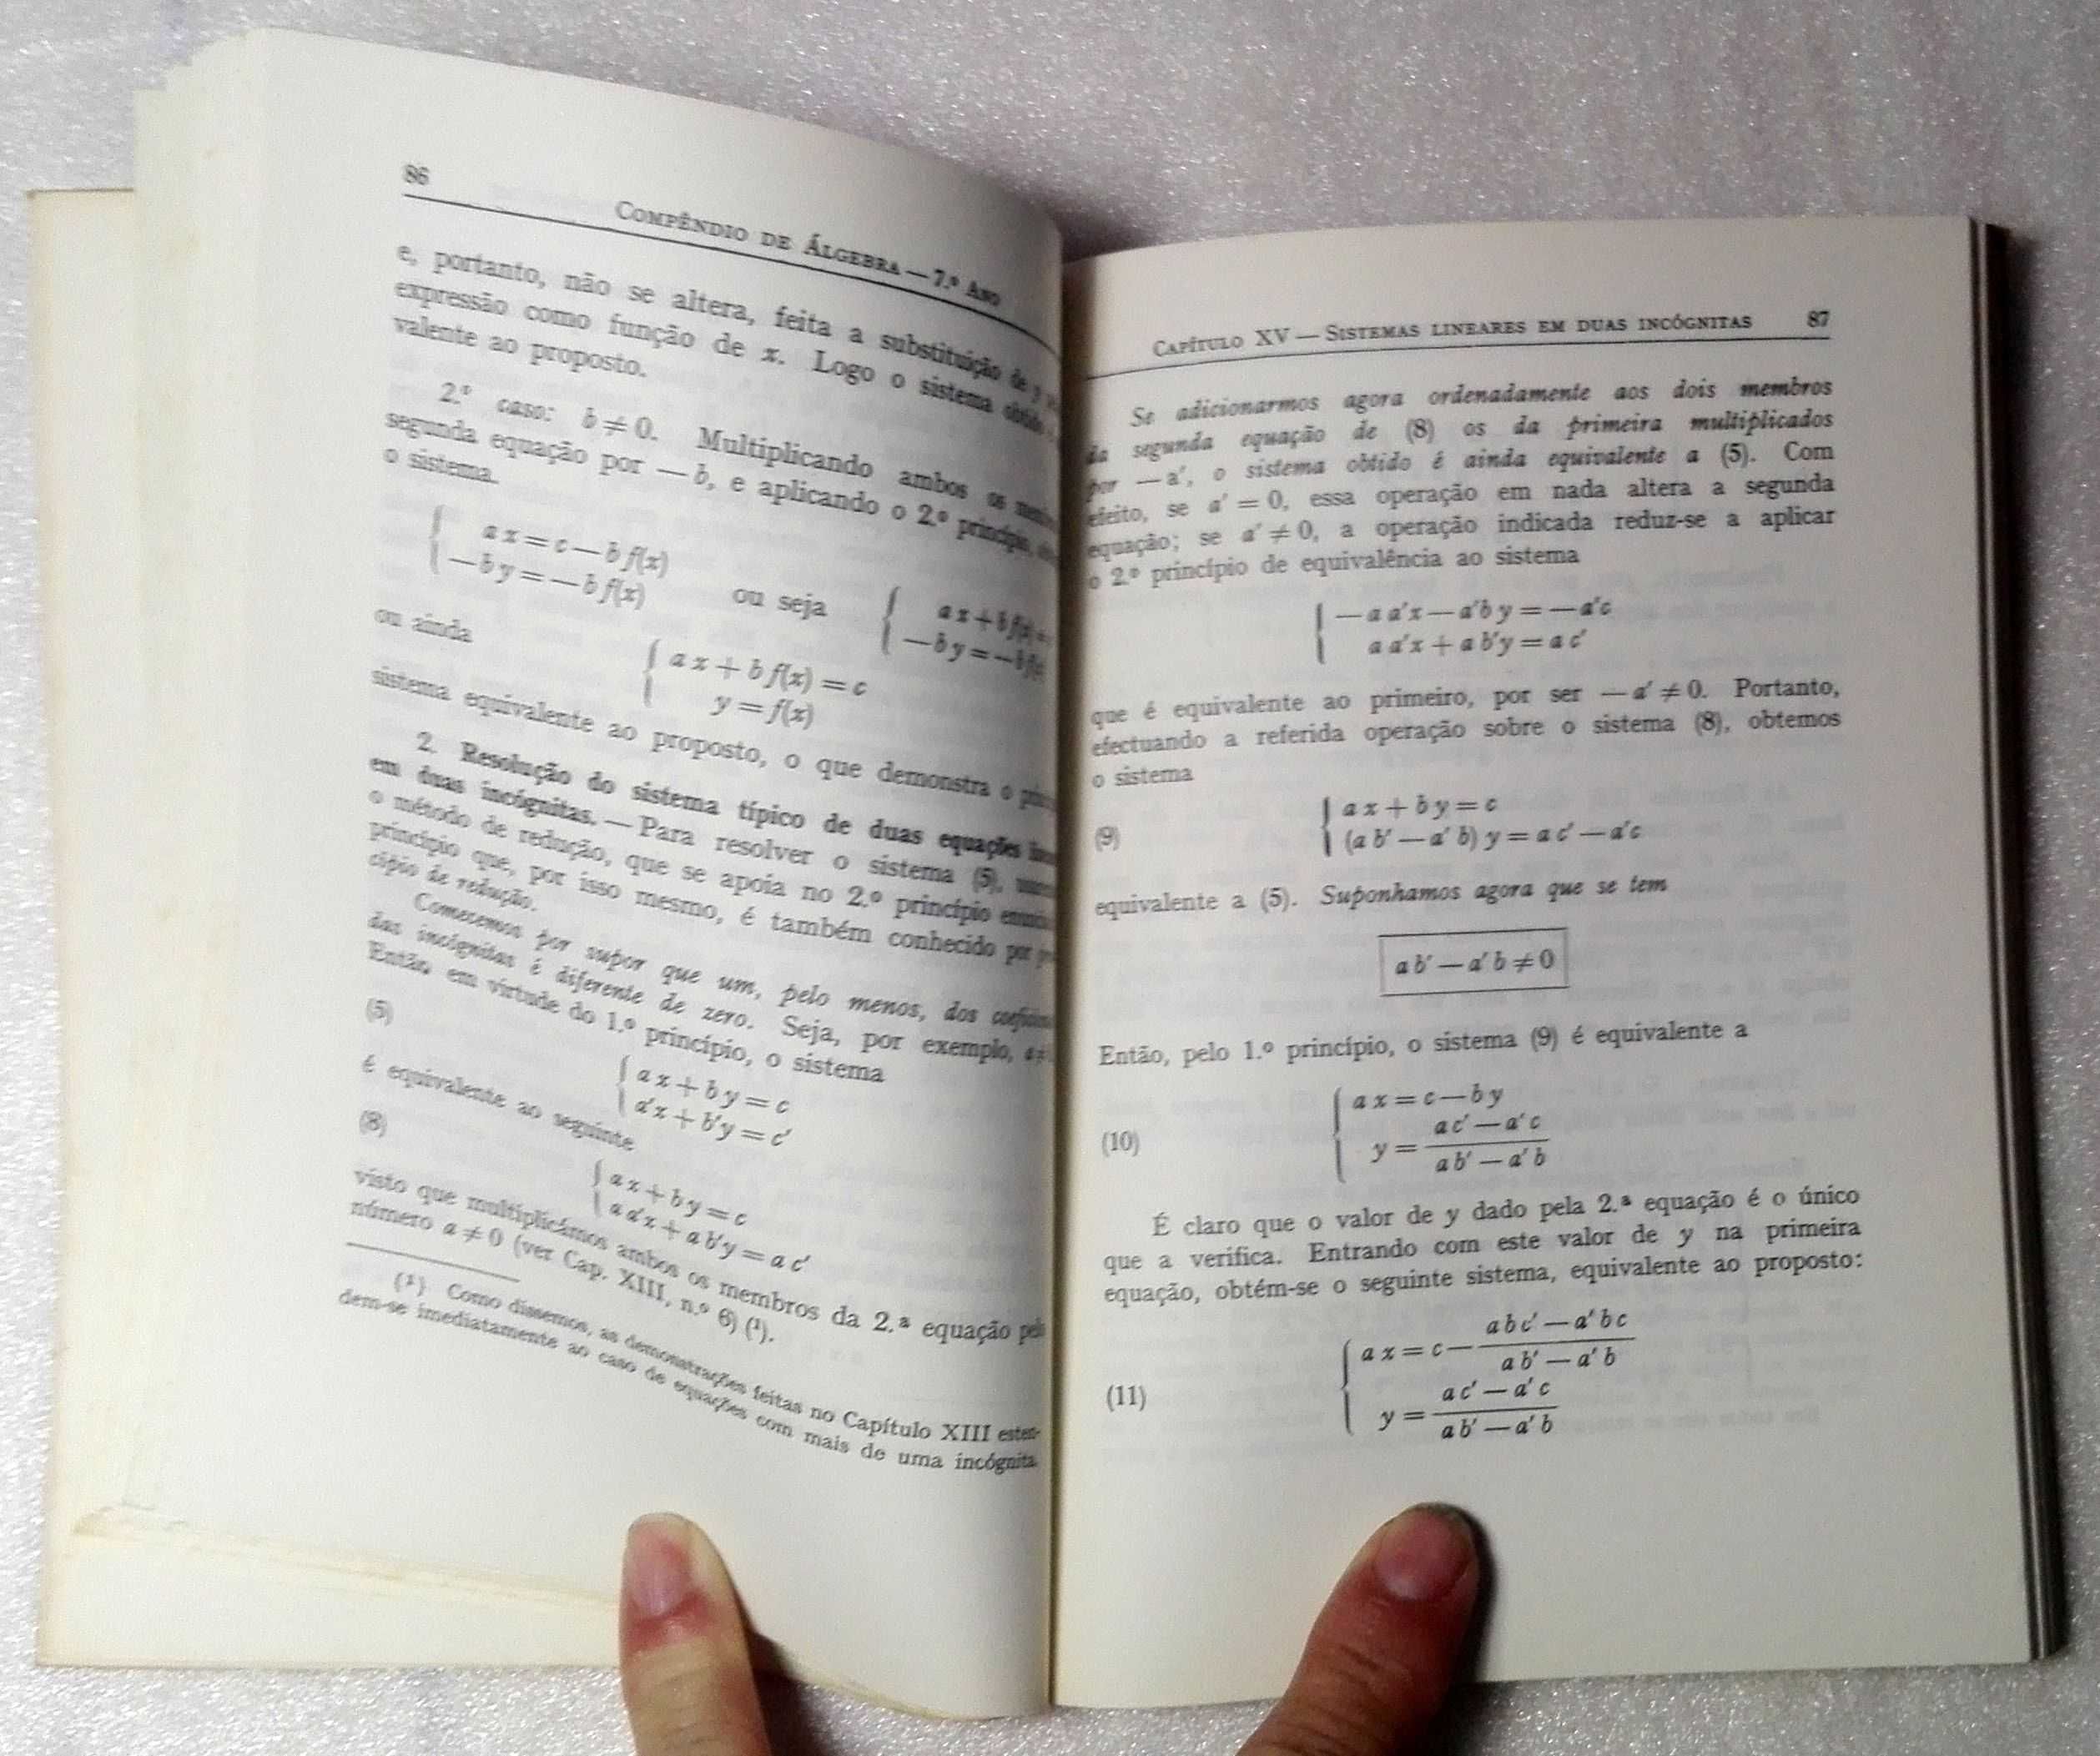 86
COMPÊNDIO DE ÁLGEBRA — 7.º ANO
e, portanto, não se altera, feita a substituição de y
expressão como função de x. Logo o sistema obtido
valente ao proposto.
2.º caso: b ≠ 0. Multiplicando ambos os
segunda equação por — b, e aplicando o 2.º princípio,
o sistema.
a x = c — b f(x)
— b y = — b f(x)
ou seja
a x + b f(x) =
— b y = — b f(x)
ou ainda
a x + b f(x) = c
y = f(x)
sistema equivalente ao proposto, o que demonstra o
2. Resolução do sistema típico de duas equações
em duas incógnitas. — Para resolver o sistema (5),
o método de redução, que se apoia no 2.º princípio
princípio que, por isso mesmo, é também conhecido por
cípio de redução.
Comecemos por supor que um, pelo menos, dos
das incógnitas é diferente de zero. Seja, por exemplo, a ≠
Então, em virtude do 1.º princípio, o sistema
(5)
a x + b y = c
a′x + b′y = c′
é equivalente ao seguinte
(8)
a x + b y = c
a a′x + a b′y = a c′
visto que multiplicámos ambos os membros da 2.ª equação pelo
número a ≠ 0 (ver Cap. XIII, n.º 6) (¹).
(¹) Como dissemos, as demonstrações feitas no Capítulo XIII esten-
dem-se imediatamente ao caso de equações com mais de uma incógnita.
CAPÍTULO XV — SISTEMAS LINEARES EM DUAS INCÓGNITAS 87
Se adicionarmos agora ordenadamente aos dois membros
da segunda equação de (8) os da primeira multiplicados
por — a′, o sistema obtido é ainda equivalente a (5). Com
efeito, se a′ = 0, essa operação em nada altera a segunda
equação; se a′ ≠ 0, a operação indicada reduz-se a aplicar
o 2.º princípio de equivalência ao sistema
— a a′x — a′b y = — a′c
a a′x + a b′y = a c′
que é equivalente ao primeiro, por ser — a′ ≠ 0. Portanto,
efectuando a referida operação sobre o sistema (8), obtemos
o sistema
(9)
a x + b y = c
(a b′ — a′ b) y = a c′ — a′c
equivalente a (5). Suponhamos agora que se tem
a b′ — a′ b ≠ 0
Então, pelo 1.º princípio, o sistema (9) é equivalente a
(10)
a x = c — b y
y = (a c′ — a′ c) / (a b′ — a′ b)
É claro que o valor de y dado pela 2.ª equação é o único
que a verifica. Entrando com este valor de y na primeira
equação, obtém-se o seguinte sistema, equivalente ao proposto:
(11)
a x = c — (a b c′ — a′ b c) / (a b′ — a′ b)
y = (a c′ — a′ c) / (a b′ — a′ b)